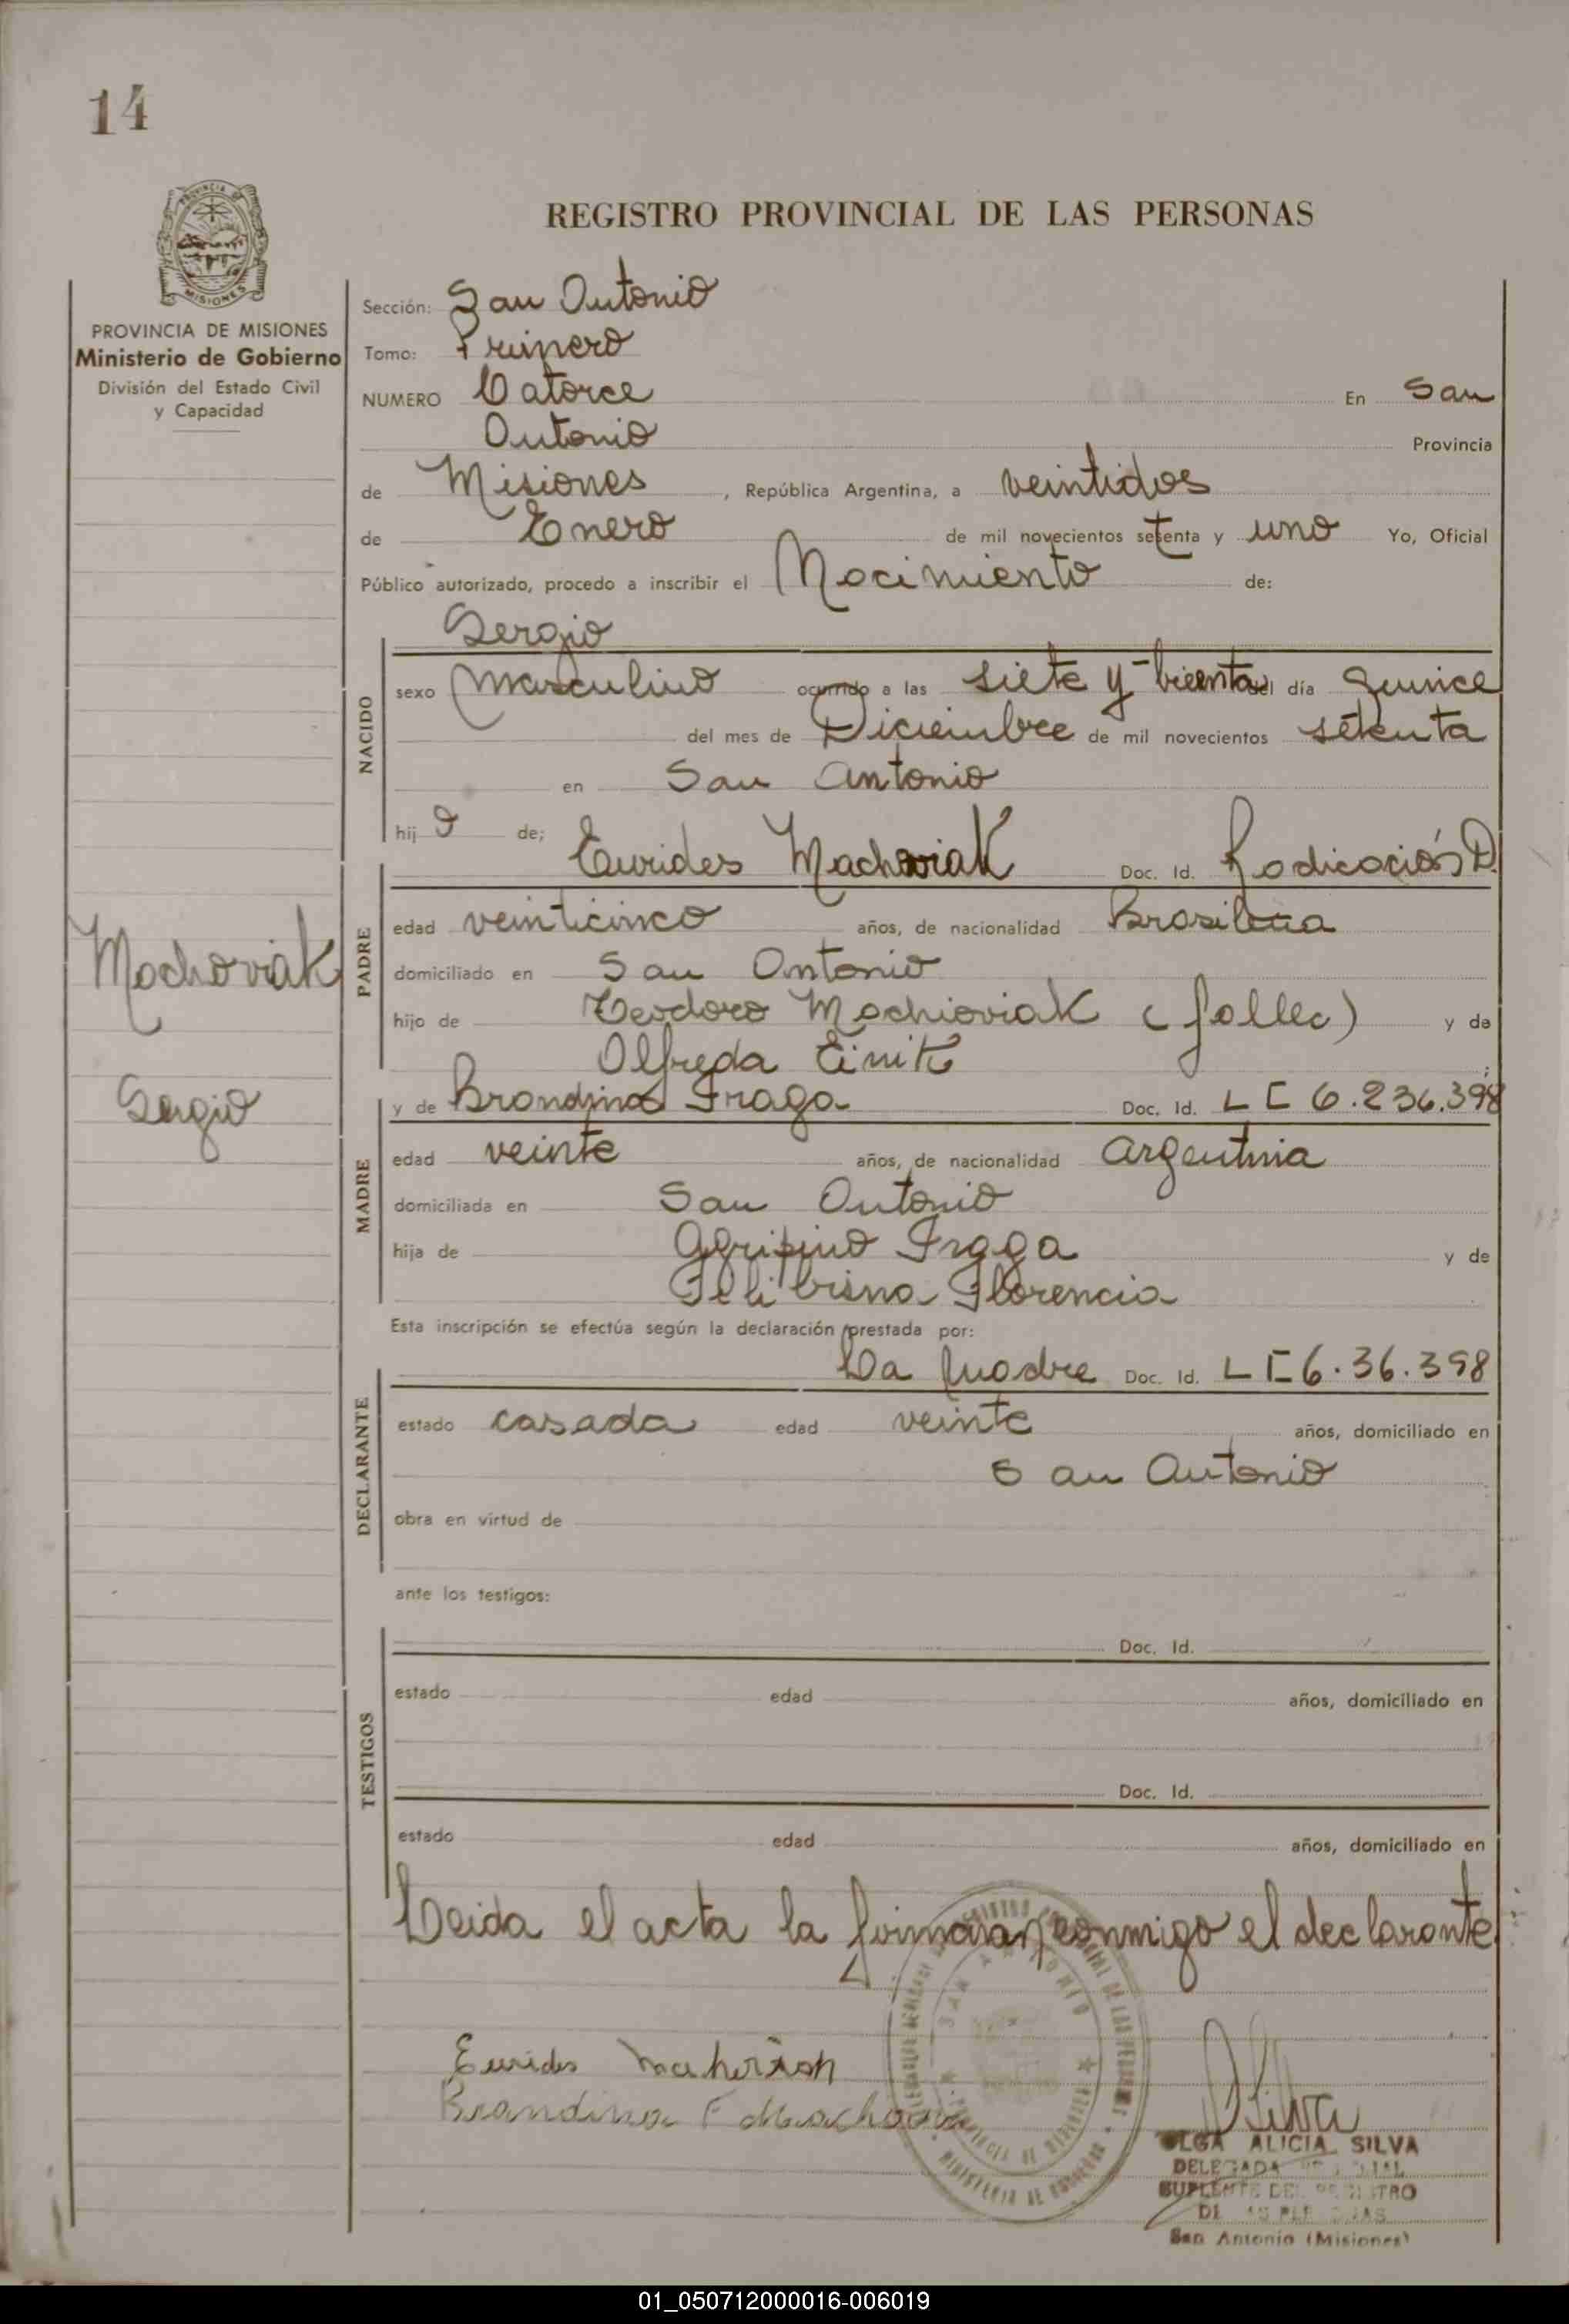 14
PROVINCIA DE
MISIONES
PROVINCIA DE MISIONES
Ministerio de Gobierno
División del Estado Civil
y Capacidad
REGISTRO PROVINCIAL DE LAS PERSONAS
Sección: San Antonio
Tomo: Primero
NUMERO Catorce En San
Antonio Provincia
de Misiones, República Argentina, a veintidos
de Enero de mil novecientos setenta y uno Yo, Oficial
Público autorizado, procedo a inscribir el Nacimiento de:
Sergio
NACIDO
sexo masculino ocurrido a las siete y treenta del día Quince
del mes de Diciembre de mil novecientos setenta
en San Antonio
hij o de;
Eurides Machoviak Doc. Id. Radicación D.
PADRE
edad veinticinco años, de nacionalidad Brasilera
domiciliado en San Antonio
hijo de Teodoro Machioviak (fallec) y de
Olfreda Einik;
Machoviak
Sergio
y de Brandina Fraga Doc. Id. LC 6.236.398
MADRE
edad veinte años, de nacionalidad argentina
domiciliada en San Antonio
hija de Agripino Fraga y de
Florencia
Esta inscripción se efectúa según la declaración prestada por:
La Madre Doc. Id. LC 6.36.398
DECLARANTE
estado casada edad veinte años, domiciliado en
San Antonio
obra en virtud de
ante los testigos:
TESTIGOS
Doc. Id.
estado edad años, domiciliado en
Doc. Id.
estado edad años, domiciliado en
Leida el acta la firman conmigo el declarante
Eurides
Brandina F de
Silva
OLGA ALICIA SILVA
DELEGADA
SUPLENTE DEL REGISTRO
DE LAS PERSONAS
San Antonio (Misiones)
01_050712000016-006019